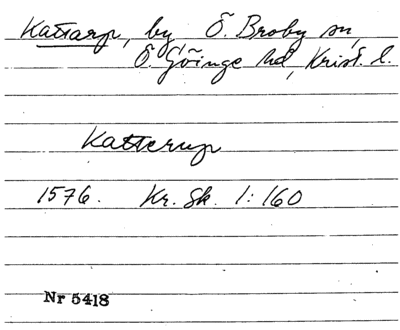 Kattarp, by, Ö. Broby sn,
Ö. Göinge hd, Krist. l.
Katterup
1576. Kr. Sk. 1:160
Nr 5418